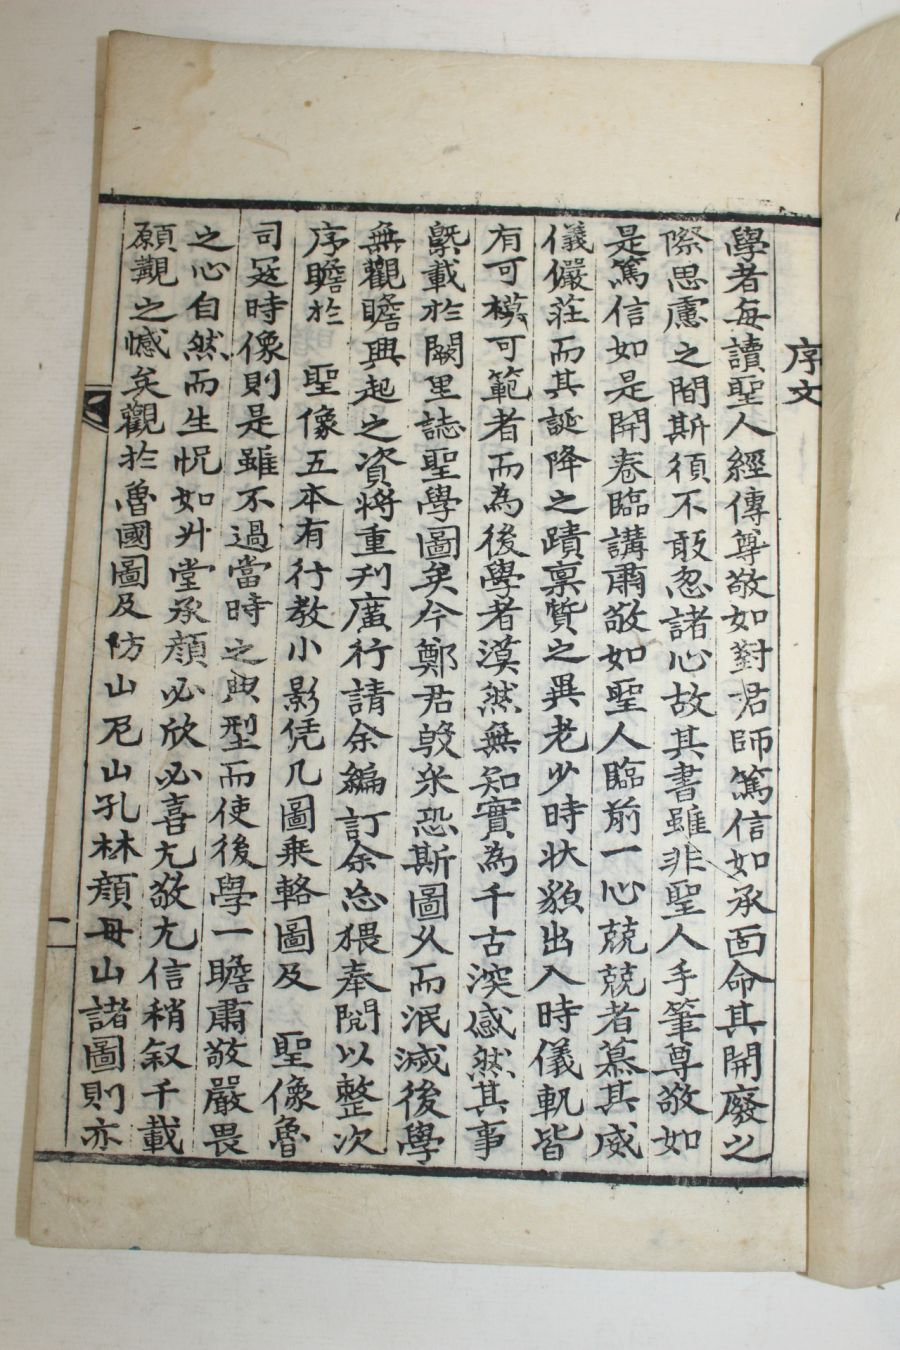 序文
學者每讀聖人經傳尊敬如對君師篤信如承面命其開廢之
際思慮之間斯須不敢忽諸心故其書雖非聖人手筆尊敬如
是篤信如是開卷臨講肅敬如聖人臨前一心兢兢者慕其威
儀儼莊而其誕降之蹟稟質之異老少時狀貌出入時儀軌皆
有可模可範者而為後學者漠然無知實為千古深感然其事
槩載於闕里誌聖學圖矣今鄭君 來恐斯圖久而泯滅後學
無觀瞻興起之資將重刊廣行請余編訂余忘猥奉閱以整次
序瞻於 聖像五本有行教小影凭几圖乘輅圖及 聖像魯
司寇時像則是雖不過當時之典型而使後學一瞻肅敬嚴畏
之心自然而生怳如升堂承顔必欣必喜尤敬尤信稍叙千載
願觀之憾矣觀於魯國圖及防山尼山孔林顔母山諸圖則亦
一